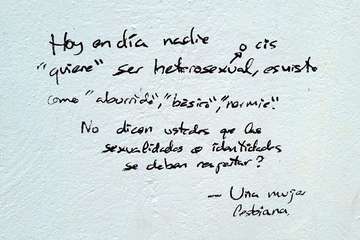 Hoy en día nadie
"quiere" ser heterosexual, o cis es visto
como "aburrido", "básico", "normie".
No dicen ustedes que las
sexualidades e identidades
se deben respetar?
— Una mujer
lesbiana.